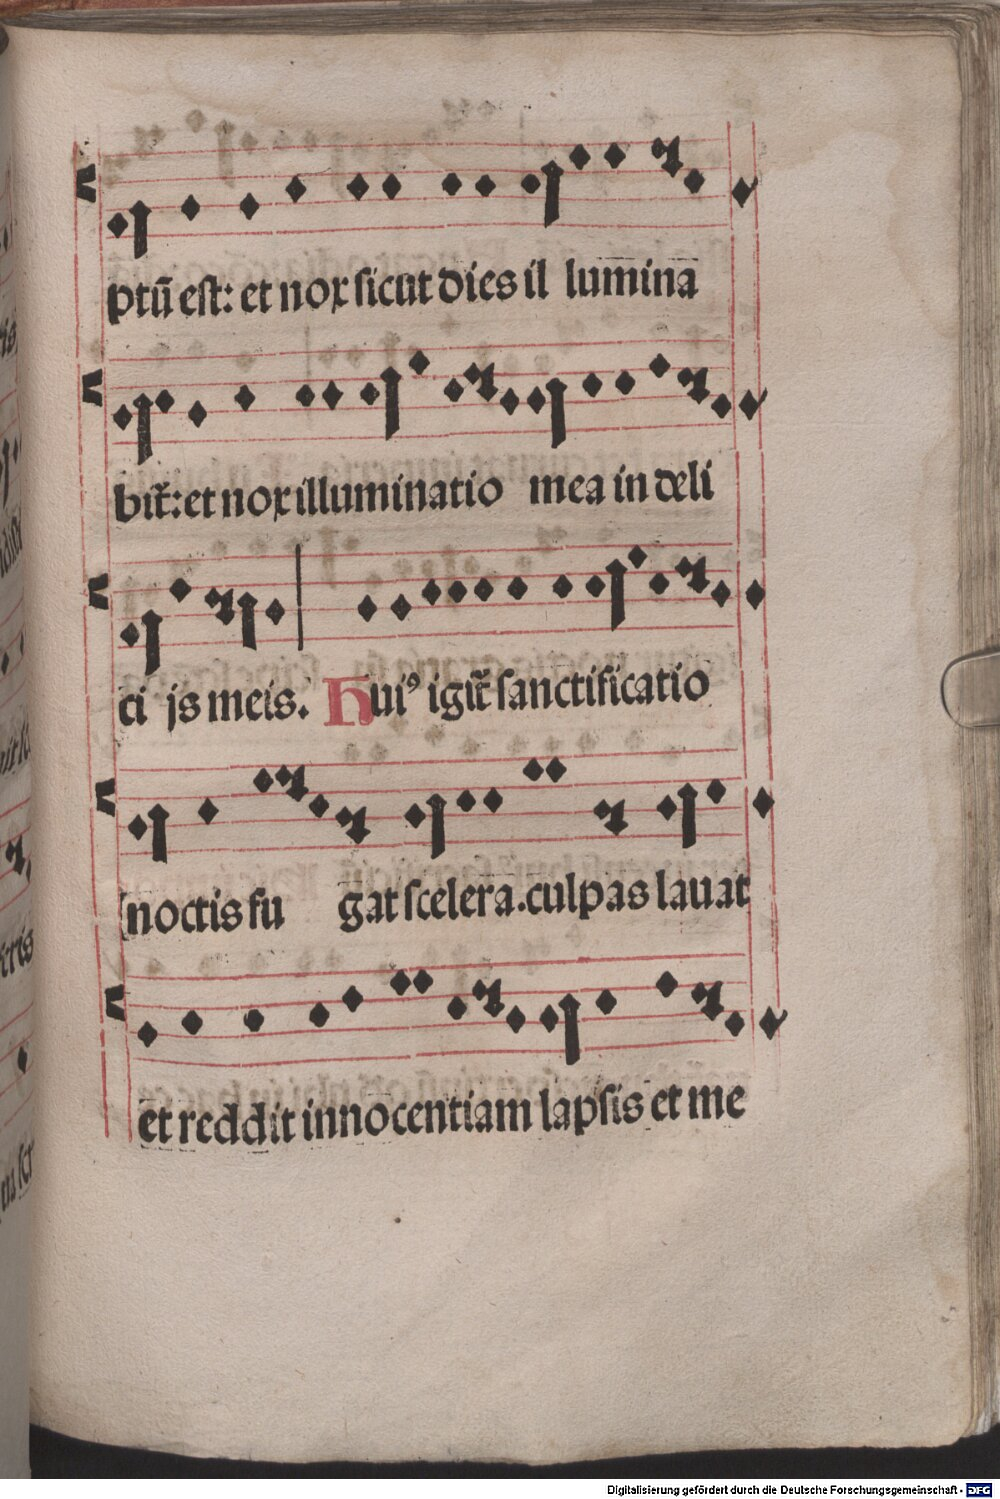 ptū est: et nox sicut dies il lumina
bit̄: et nox illuminatio mea in deli
ci js meis. Huiꝰ igit̄ sanctificatio
noctis fu gat scelera. culpas lauat
et reddit innocentiam lapsis et me
Digitalisierung gefördert durch die Deutsche Forschungsgemeinschaft - DFG